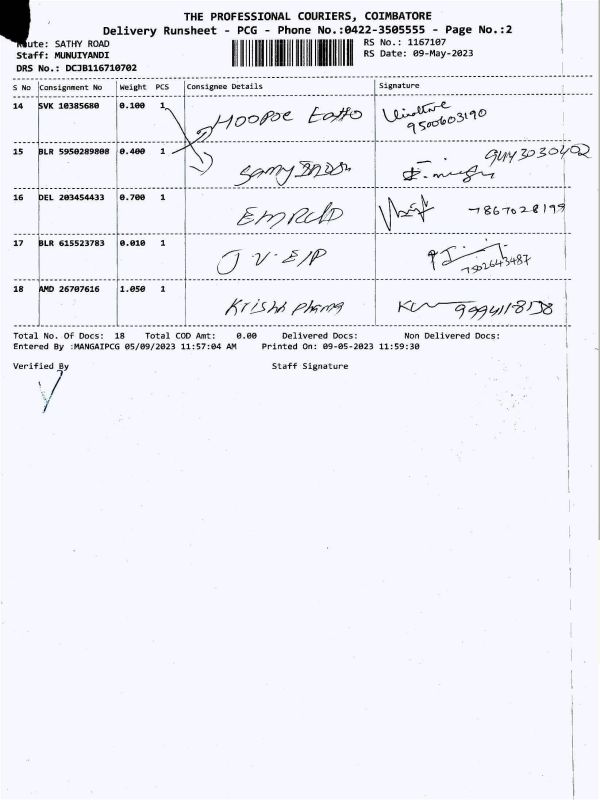 THE PROFESSIONAL COURIERS, COIMBATORE
Delivery Runsheet - PCG - Phone No.:0422-3505555 - Page No.:2
Route: SATHY ROAD
RS No.: 1167107
Staff: MUNUIYANDI
RS Date: 09-May-2023
DRS No.: DCJB116710702
S No Consignment No Weight PCS Consignee Details Signature
14 SVK 10385680 0.100 1 HOOPOE
9500603190
15 BLR 5950289808 0.400 1 Samy
16 DEL 203454433 0.700 1 EMRald 7867028199
17 BLR 615523783 0.010 1 J V. E/P
7502643487
18 AMD 26707616 1.050 1 Krish Pharma
Total No. Of Docs: 18 Total COD Amt: 0.00 Delivered Docs: Non Delivered Docs:
Entered By :MANGAIPCG 05/09/2023 11:57:04 AM Printed On: 09-05-2023 11:59:30
Verified By Staff Signature